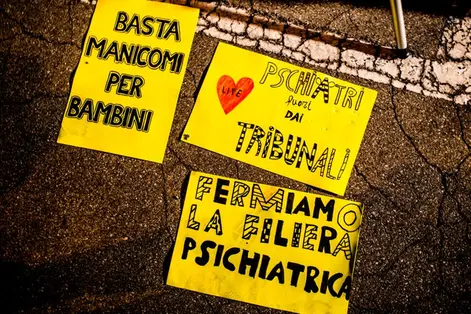 BASTA
MANICOMI
PER
BAMBINI
LIFE
PSCHIATRI
fuori
DAI
TRIBUNALI
FERMIAMO
LA FILIERA
PSICHIATRICA